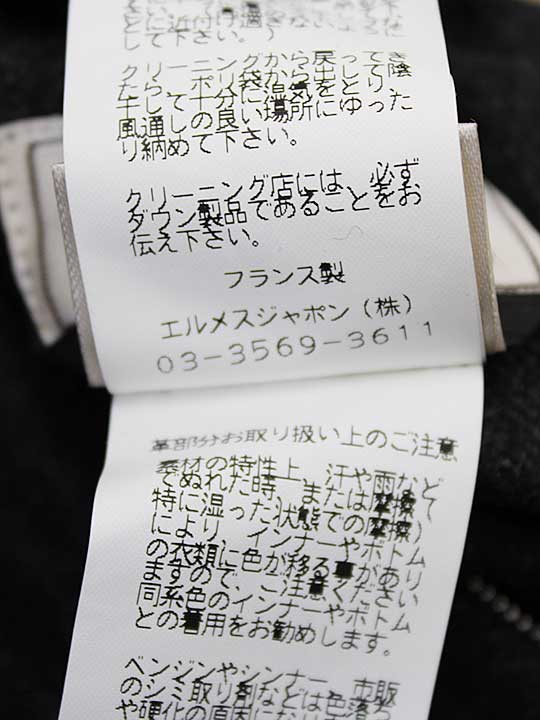 どに近付け過ぎないようにな
して下さい。)
クリーニングから戻ってき
たら、ポリ袋から出して陰
干して十分に湿気をとり、
風通しの良い場所にゆった
り納めて下さい。
クリーニング店には、必ず
ダウン製品であることをお
伝え下さい。
フランス製
エルメスジャポン(株)
03-3569-3611
革部分お取り扱い上のご注意
素材の特性上、汗や雨など
でぬれた時、または摩擦(
特に湿った状態での摩擦)
により、インナーやボトム
の衣類に色が移る事があり
ますので、ご注意ください
同系色のインナーやボトム
との着用をお勧めします。
ベンジンやシンナー、市販
のシミ取り剤などは色落ち
や硬化の原因に